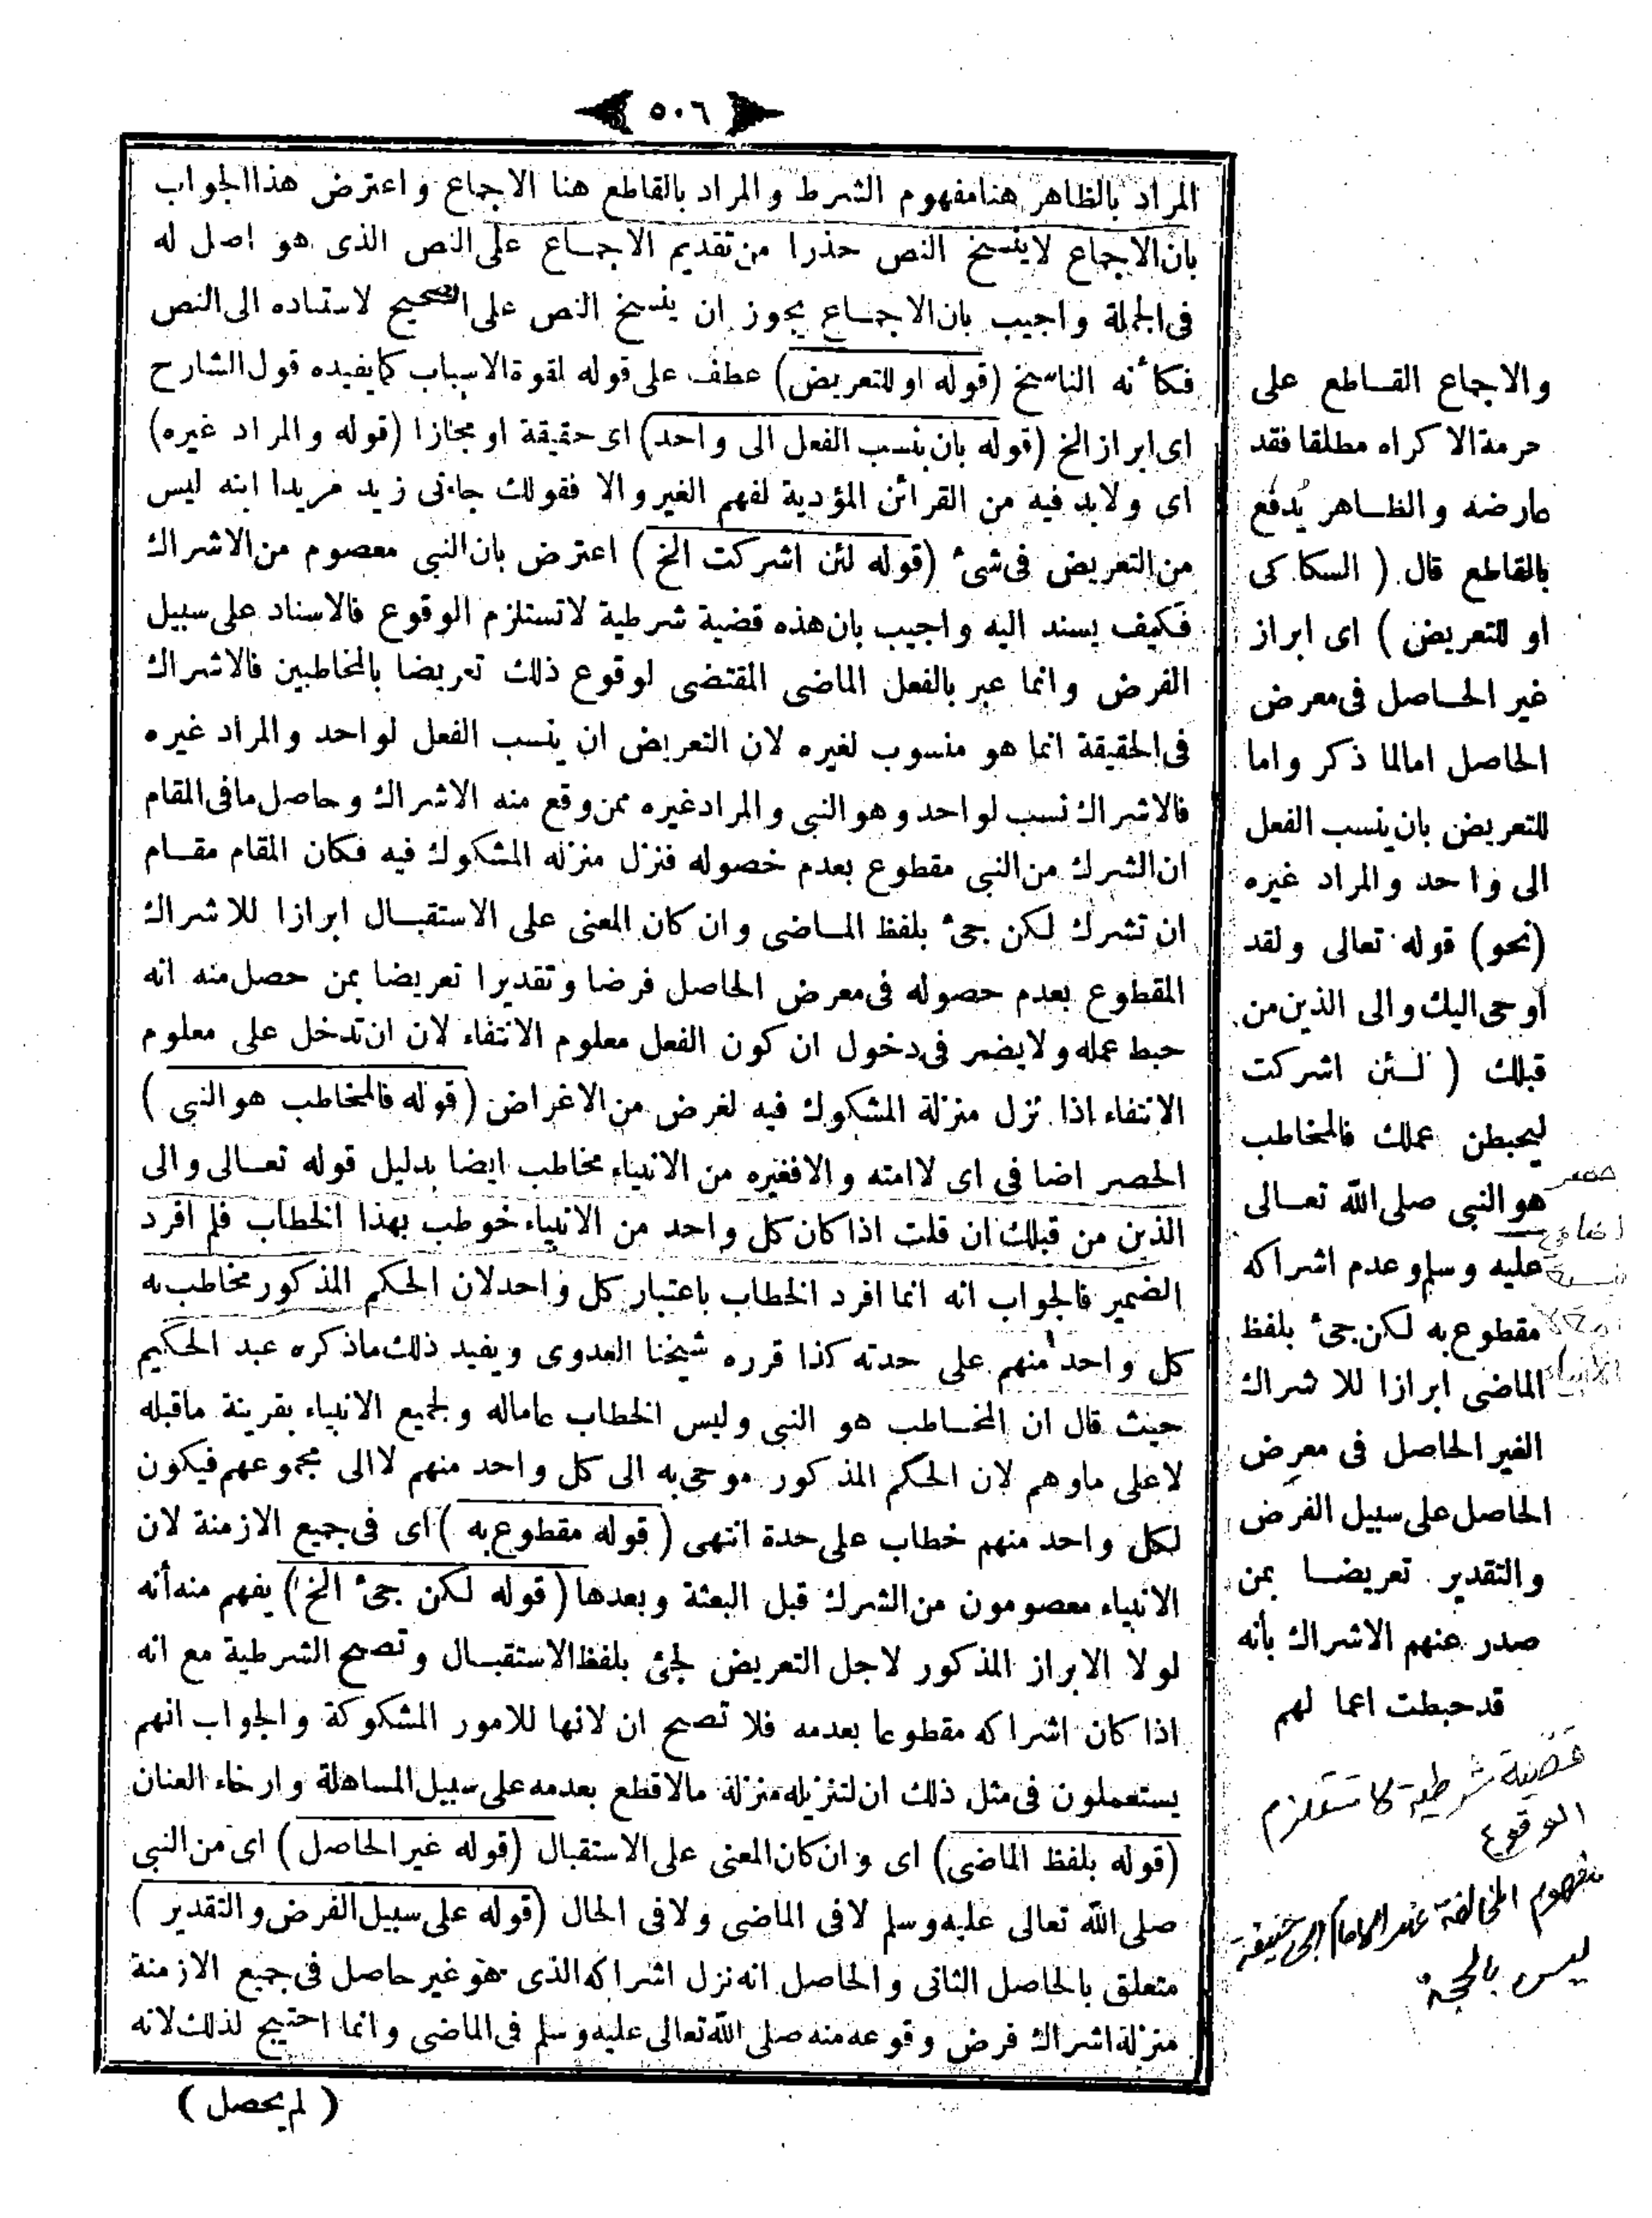 ٥٠٦
المراد بالظاهر هنا مفهوم الشرط والمراد بالقاطع هنا الاجماع واعترض هذا الجواب
بان الاجماع لا ينسخ النص حذرا من تقديم الاجماع على النص الذى هو اصل له
فى الجملة واجيب بان الاجماع يجوز ان ينسخ النص على الصحيح لاستناده الى النص
فكأنه الناسخ (قوله او للتعريض) عطف على قوله لقوة الاسباب كما يفيده قول الشارح
اى ابراز الخ (قوله بان ينسب الفعل الى واحد) اى حقيقة او مجازا (قوله والمراد غيره)
اى ولابد فيه من القرائن المؤدية لفهم الغير والا فقولك جاءنى زيد مريدا ابنه ليس
من التعريض فى شئ (قوله لئن اشركت الخ) اعترض بان النبى معصوم من الاشراك
فكيف يسند اليه واجيب بان هذه قضية شرطية لا تستلزم الوقوع فالاسناد على سبيل
الفرض وانما عبر بالفعل الماضى المقتضى لوقوع ذلك تعريضا بالمخاطبين فالاشراك
فى الحقيقة انما هو منسوب لغيره لان التعريض ان ينسب الفعل لواحد والمراد غيره
فالاشراك نسب لواحد وهو النبى والمراد غيره ممن وقع منه الاشراك وحاصل ما فى المقام
ان الشرك من النبى مقطوع بعدم خصوله فنزل منزله المشكوك فيه فكان المقام مقام
ان تشرك لكن جئ بلفظ الماضى وان كان المعنى على الاستقبال ابرازا للاشراك
المقطوع بعدم حصوله فى معرض الحاصل فرضا وتقديرا تعريضا بمن حصل منه انه
حبط عمله ولا يضر فى دخول ان كون الفعل معلوم الانتفاء لان ان تدخل على معلوم
الانتفاء اذا نزل منزلة المشكوك فيه لغرض من الاغراض (قوله فالمخاطب هو النبى)
الحصر اضا فى اى لا امته والا فغيره من الانبياء مخاطب ايضا بدليل قوله تعالى والى
الذين من قبلك ان قلت اذا كان كل واحد من الانبياء خوطب بهذا الخطاب فلم افرد
الضمير فالجواب انه انما افرد الخطاب باعتبار كل واحد لان الحكم المذكور مخاطب به
كل واحد منهم على حدته كذا قرره شيخنا العدوى ويفيد ذلك ما ذكره عبد الحكيم
حيث قال ان المخاطب هو النبى وليس الخطاب عاما له ولجميع الانبياء بقرينة ما قبله
لا على ما وهم لان الحكم المذكور موحى به الى كل واحد منهم لا الى مجموعهم فيكون
لكل واحد منهم خطاب على حدة انتهى (قوله مقطوع به) اى فى جميع الازمنة لان
الانبياء معصومون من الشرك قبل البعثة وبعدها (قوله لكن جئ الخ) يفهم منه أنه
لولا الابراز المذكور لاجل التعريض لجئ بلفظ الاستقبال وتصح الشرطية مع انه
اذا كان اشراكه مقطوعا بعدمه فلا تصح ان لانها للامور المشكوكة والجواب انهم
يستعملون فى مثل ذلك ان لتنزيله منزلة مالا قطع بعدمه على سبيل المساهلة وارخاء العنان
(قوله بلفظ الماضى) اى وان كان المعنى على الاستقبال (قوله غير الحاصل) اى من النبى
صلى الله تعالى عليه وسلم لا فى الماضى ولا فى الحال (قوله على سبيل الفرض والتقدير)
متعلق بالحاصل الثانى والحاصل انه نزل اشراكه الذى هو غير حاصل فى جميع الازمنة
منزلة اشراك فرض وقوعه منه صلى الله تعالى عليه وسلم فى الماضى وانما احتيج لذلك لانه
(لم يحصل)
والاجماع القاطع على
حرمة الاكراه مطلقا فقد
عارضه والظاهر يُدفع
بالقاطع قال (السكاكى
او للتعريض) اى ابراز
غير الحاصل فى معرض
الحاصل اما لما ذكر واما
للتعريض بان ينسب الفعل
الى واحد والمراد غيره
(نحو) قوله تعالى ولقد
أوحى اليك والى الذين من
قبلك (لئن اشركت
ليحبطن عملك فالمخاطب
هو النبى صلى الله تعالى
عليه وسلم وعدم اشراكه
مقطوع به لكن جئ بلفظ
الماضى ابرازا للاشراك
الغير الحاصل فى معرض
الحاصل على سبيل الفرض
والتقدير تعريضا بمن
صدر عنهم الاشراك بأنه
قد حبطت اعمالهم
حصر
اضافى
الأنبياء
قضية شرطية لا تستلزم
الوقوع
مفهوم المخالفة عند الامام ابى حنيفة
ليس بالحجة